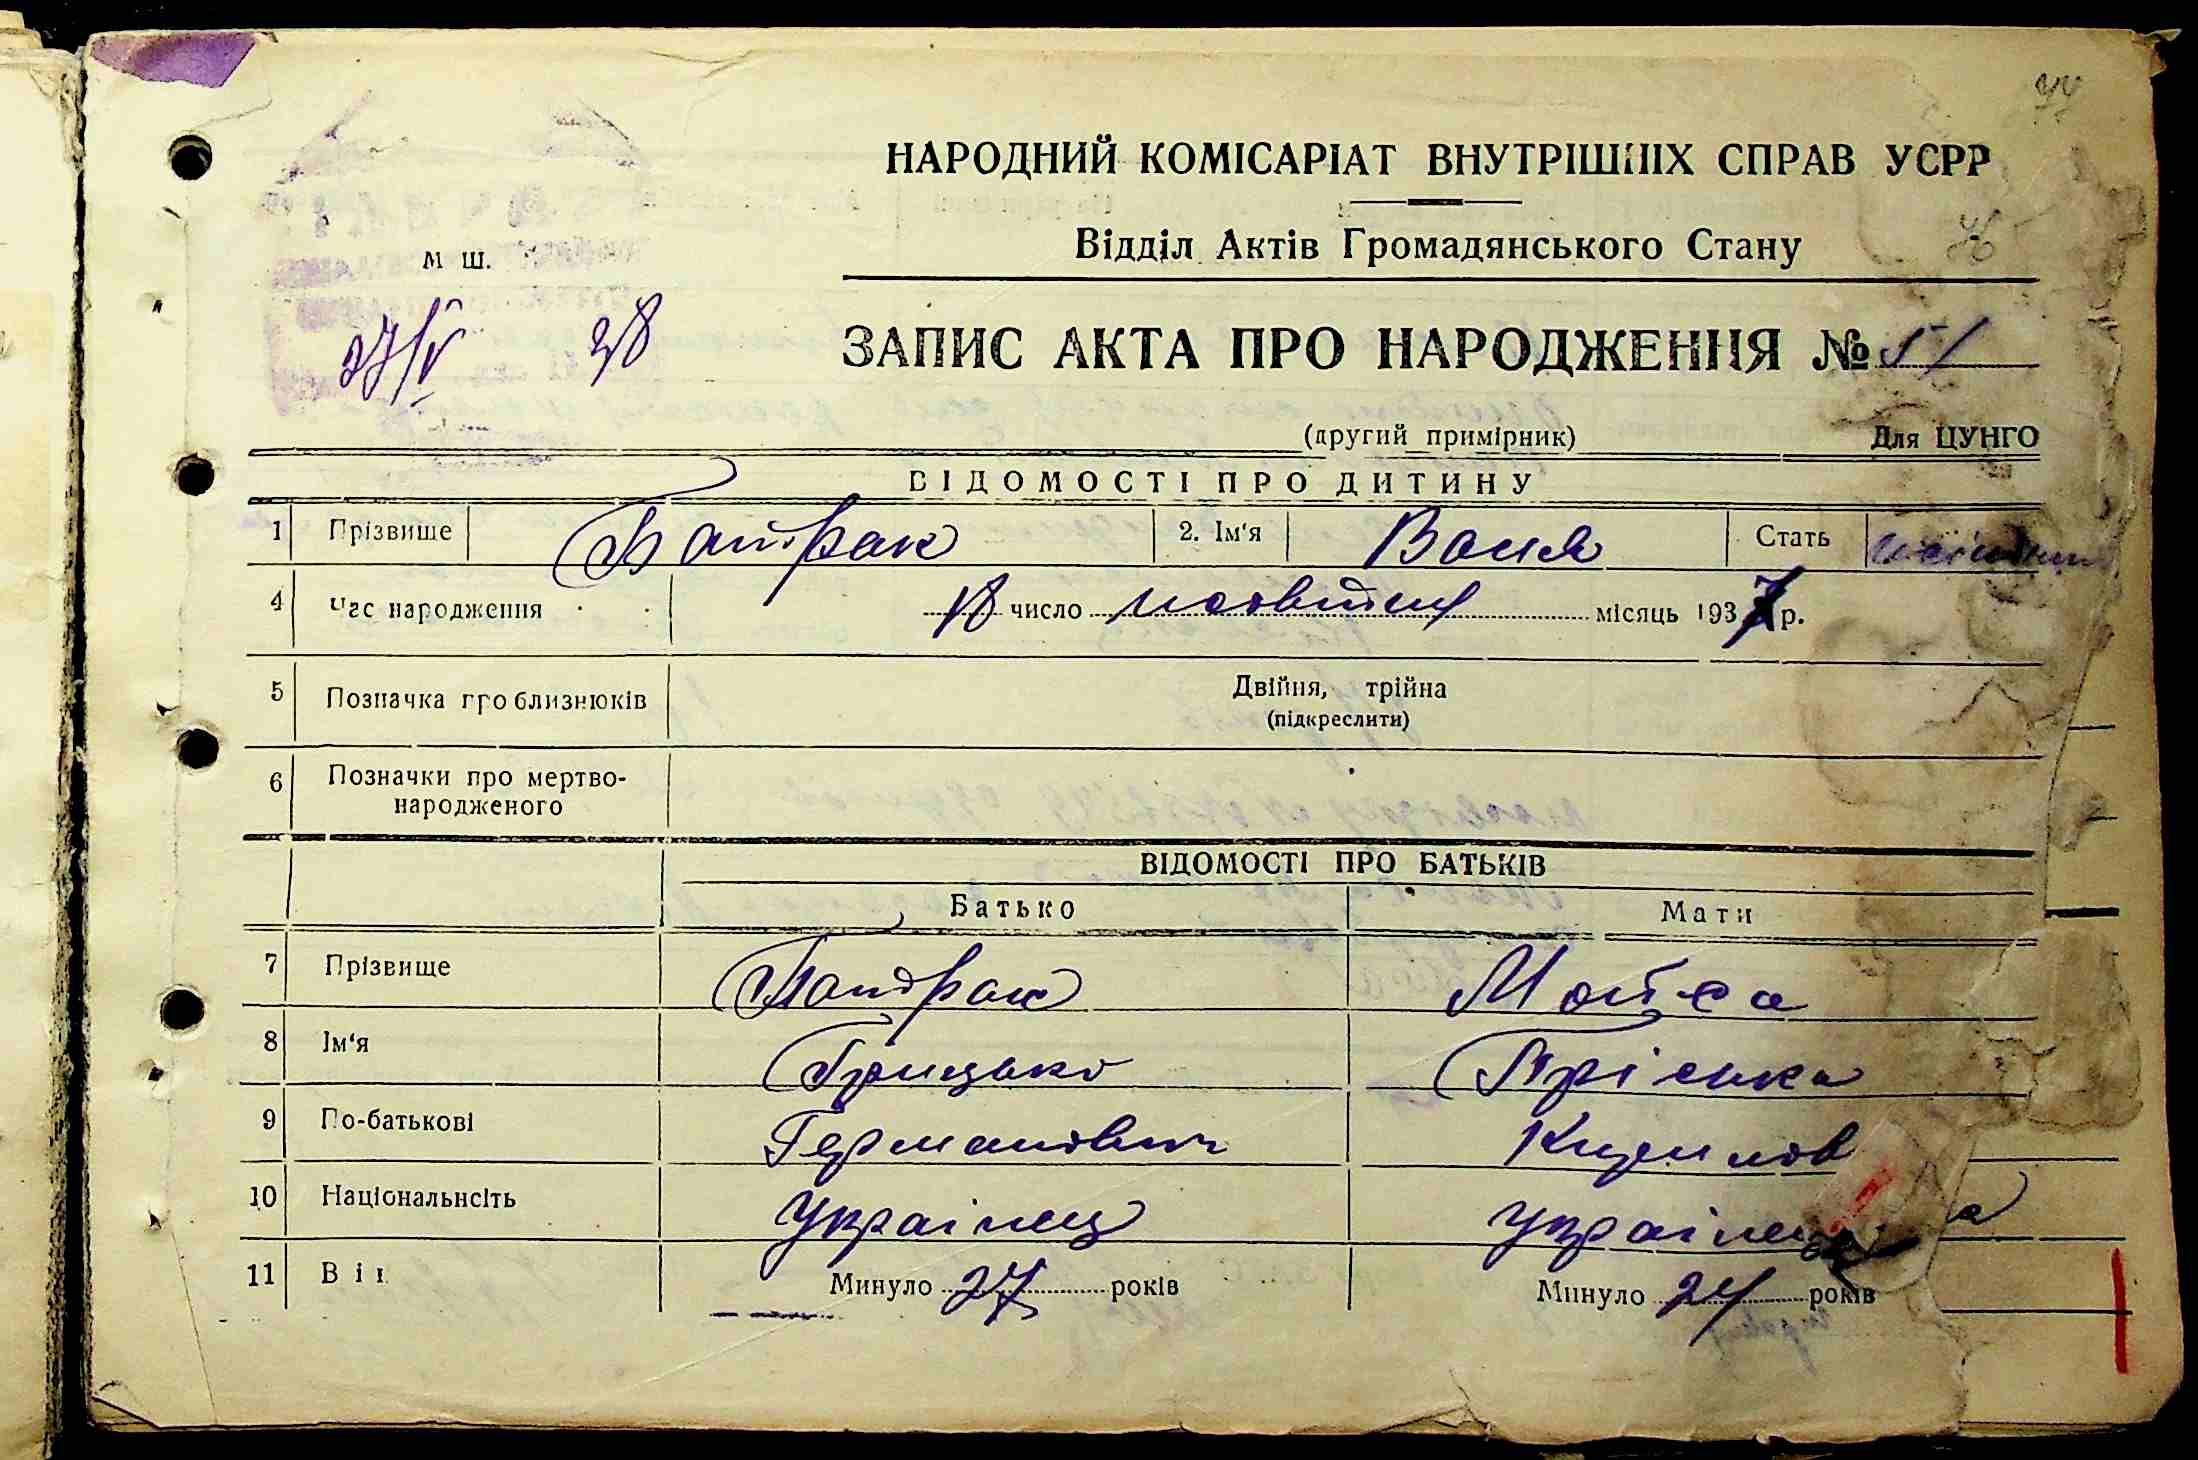 44
НАРОДНИЙ КОМІСАРІАТ ВНУТРІШНІХ СПРАВ УСРР
Відділ Актів Громадянського Стану
м ш.
27/V 38
ЗАПИС АКТА ПРО НАРОДЖЕННЯ № 51
(другий примірник) Для ЦУНГО
ВІДОМОСТІ ПРО ДИТИНУ
1 Прізвище Батрак 2. Ім'я Ваня Стать
4 Час народження 18 число жовтня місяць 1937 р.
5 Позначка про близнюків Двійня, трійна
(підкреслити)
6 Позначки про мертво-
народженого
ВІДОМОСТІ ПРО БАТЬКІВ
Батько Мати
7 Прізвище Батрак Мойса
8 Ім'я Грицько Пріська
9 По-батькові Германович Кирилов
10 Національнсіть Українец Українка
11 Вік Минуло 27 років Минуло 24 років